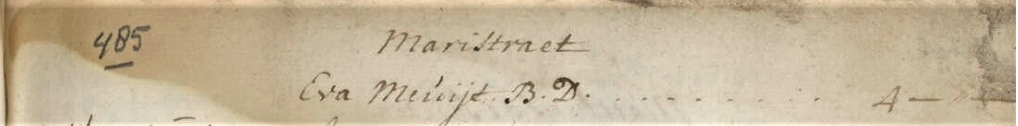 485
Maristraet
Eva Meüijt. B. D. . . . . . . . . . 4 — " —